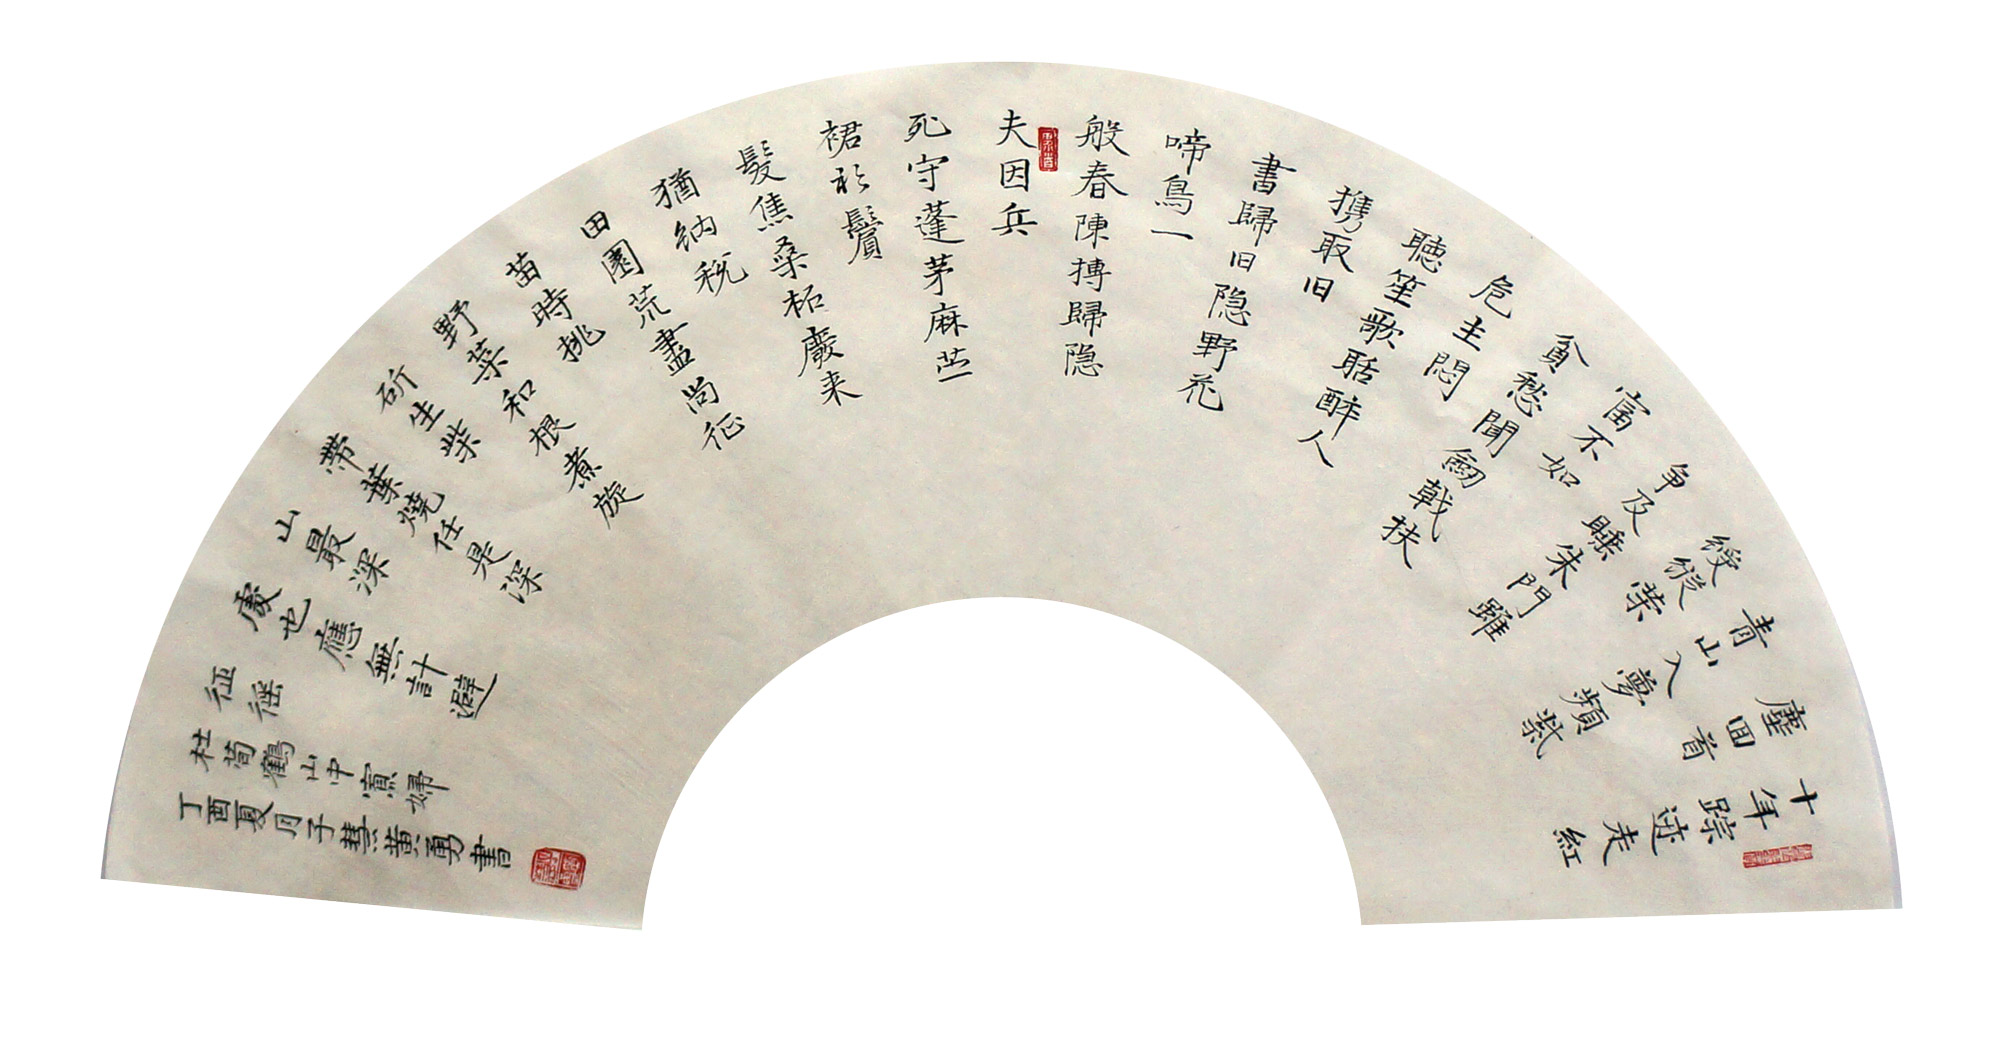 十年踪迹走紅
塵回首
青山入夢頻紫
綬縱榮
争及睡朱門雖
富不如
貧愁聞劒戟扶
危主悶
聽笙歌聒醉人
携取旧
書歸旧隐野花
啼鳥一
般春陳摶歸隐
夫因兵
死守蓬茅麻苎
裙衫鬢
髮焦桑柘廢来
猶納税
田園荒盡尚征
苗時挑
野菜和根煮旋
斫生柴
帶葉燒任是深
山最深
處也應無計避
征徭
杜荀鶴山中寡婦
丁酉夏月子慧黄勇書